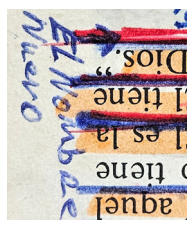 aquel
tiene
es la
tiene
Dios.”
El Nombre
Nuevo